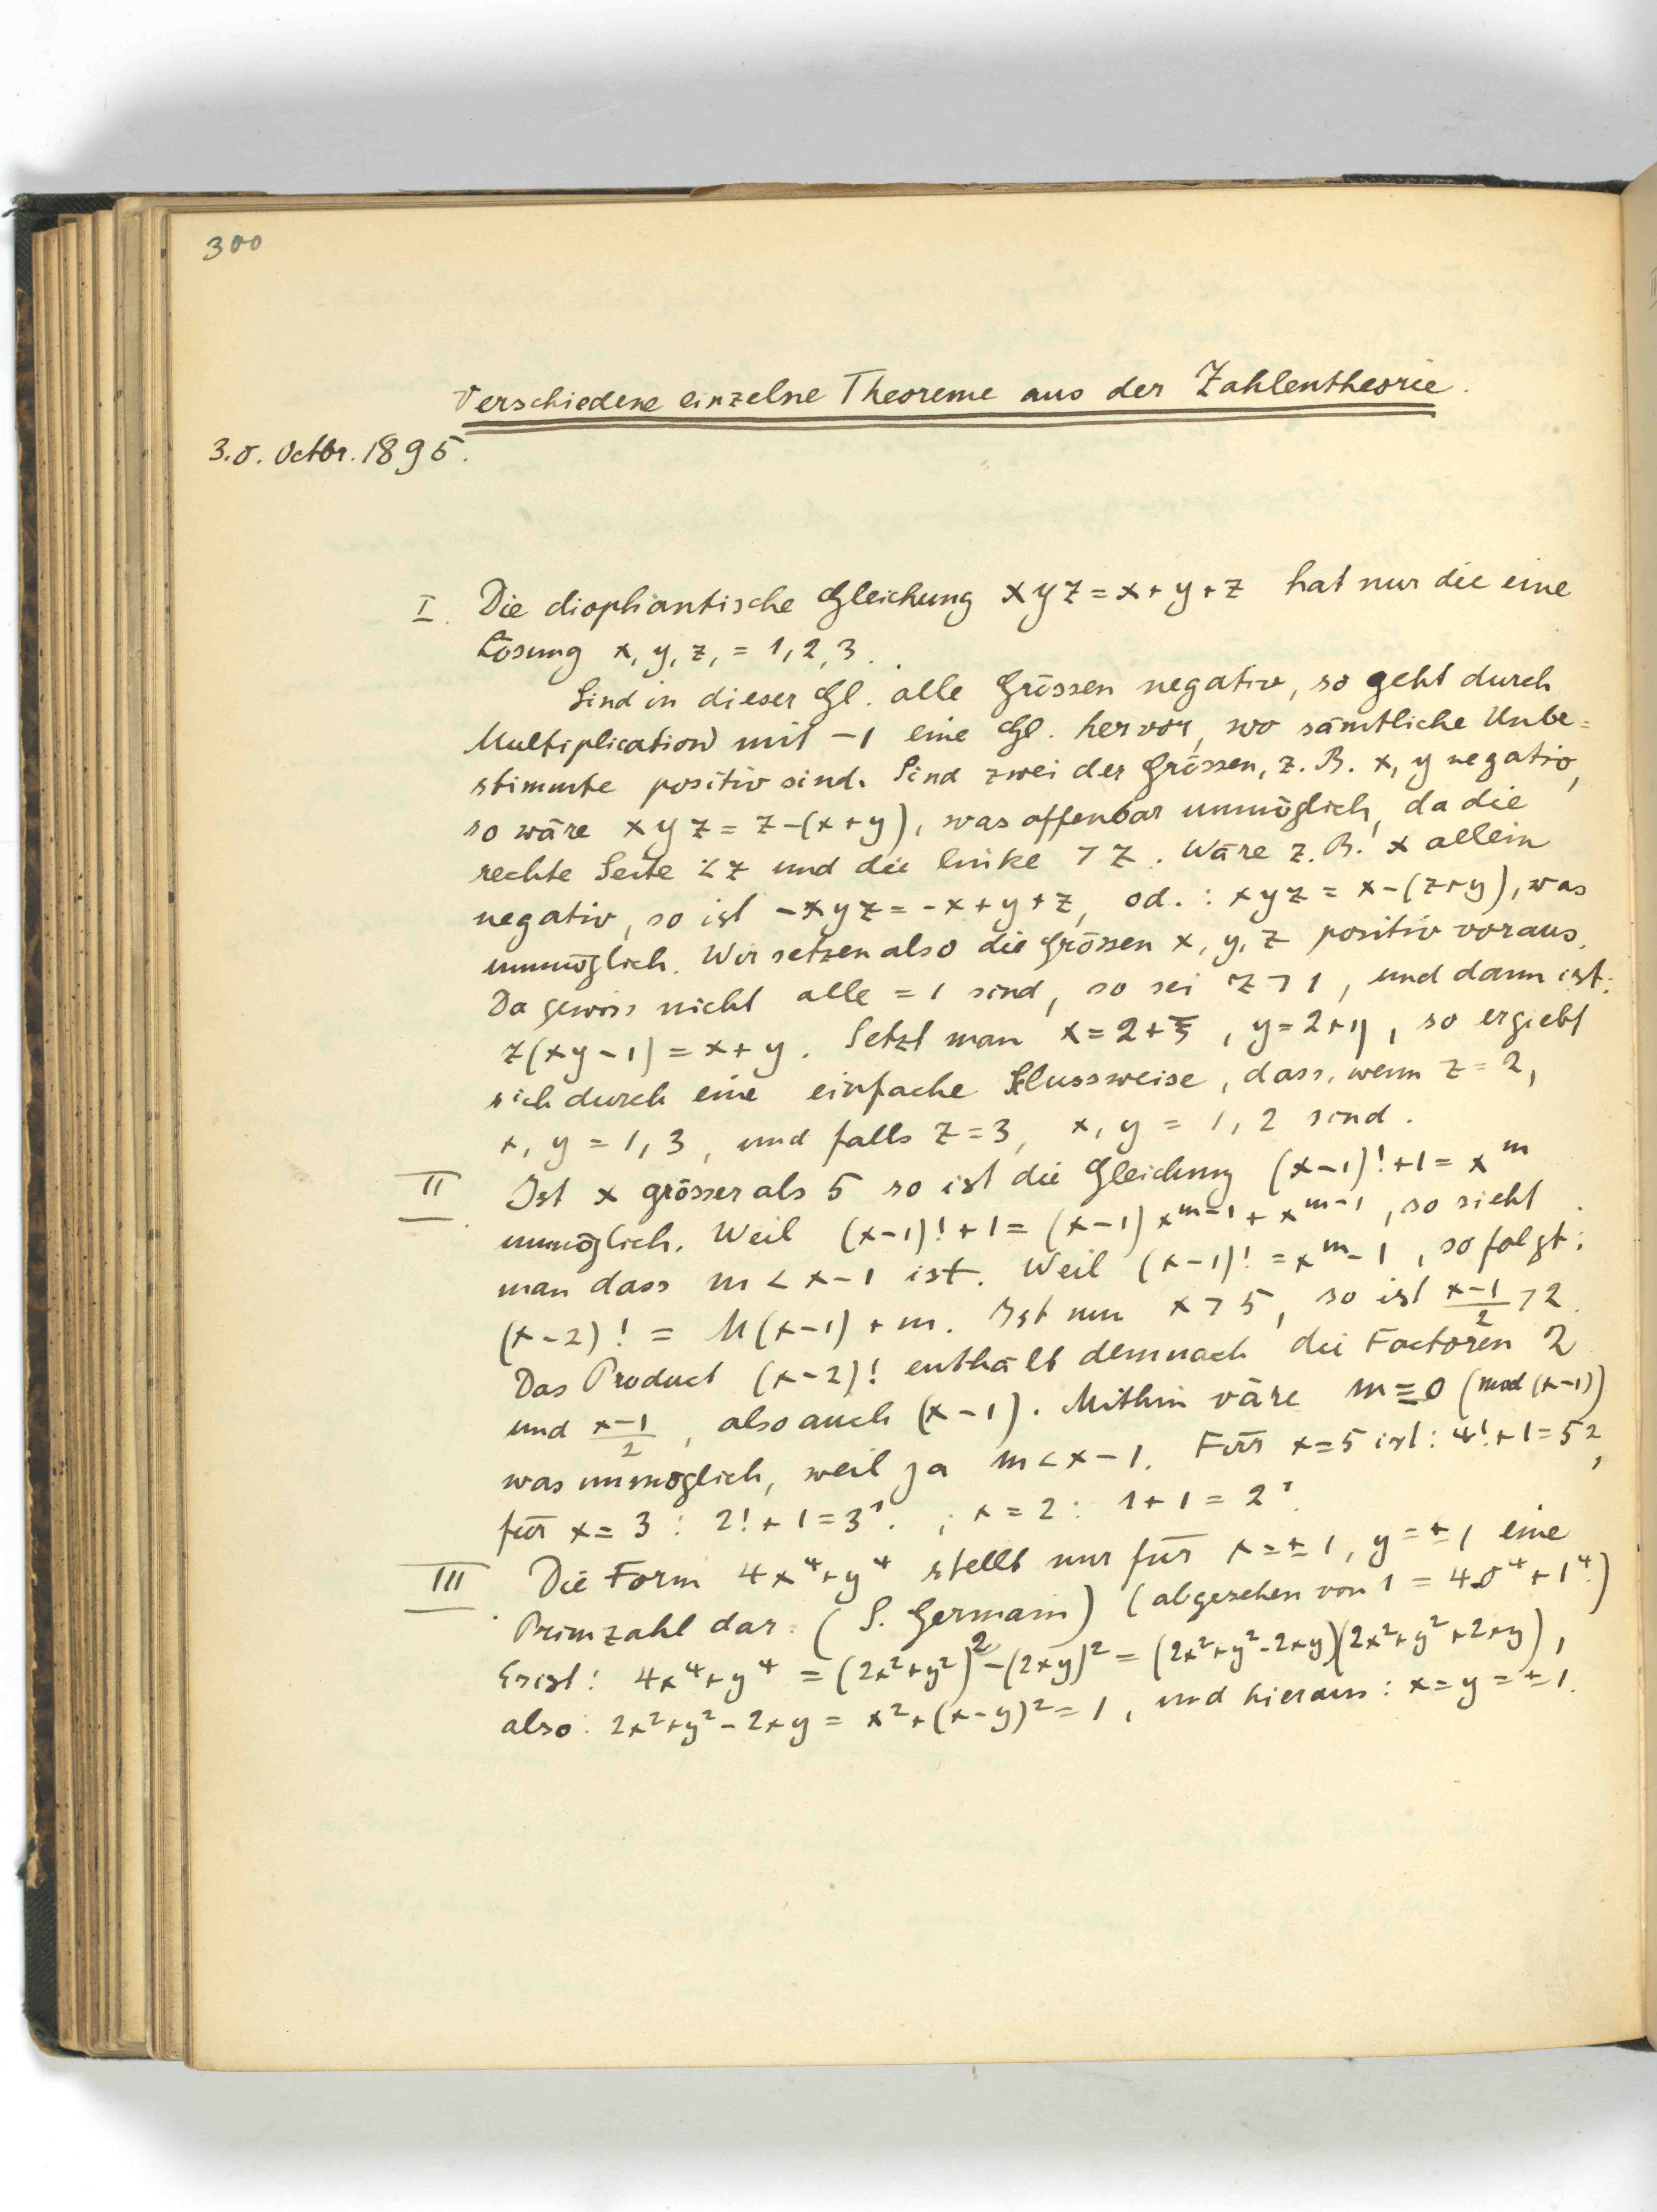 300
Verschiedene einzelne Theoreme aus der Zahlentheorie.
30. Octbr. 1895.
I. Die diophantische Gleichung xyz = x+y+z hat nur die eine
Lösung x, y, z, = 1, 2, 3.
Sind in dieser Gl. alle Grössen negativ, so geht durch
Multiplication mit -1 eine Gl. hervor, wo sämtliche Unbe=
stimmte positiv sind. Sind zwei der Grössen, z. B. x, y negativ,
so wäre xyz = z-(x+y), was offenbar unmöglich, da die
rechte Seite < z und die linke > z. Wäre z. B. x allein
negativ, so ist -xyz = -x+y+z, od.: xyz = x-(z+y), was
unmöglich. Wir setzen also die Grössen x, y, z positiv voraus.
Da gewiss nicht alle = 1 sind, so sei z > 1, und dann ist:
z(xy-1) = x+y. Setzt man x = 2+ξ, y = 2+η, so ergiebt
sich durch eine einfache Slussweise, dass, wenn z = 2,
x, y = 1, 3, und falls z = 3, x, y = 1, 2 sind.
II. Ist x grösser als 5 so ist die Gleichung (x-1)!+1 = x^m
unmöglich. Weil (x-1)!+1 = (x-1)x^{m-1}+x^{m-1}, so sieht
man dass m < x-1 ist. Weil (x-1)! = x^m-1, so folgt:
(x-2)! = M(x-1)+m. Ist nun x > 5, so ist (x-1)/2 > 2.
Das Product (x-2)! enthält demnach die Factoren 2
und (x-1)/2, also auch (x-1). Mithin väre m ≡ 0 (mod (x-1))
was unmöglich, weil ja m < x-1. Für x=5 ist: 4!+1 = 5²,
für x = 3: 2!+1 = 3¹. ; x = 2: 1+1 = 2¹.
III. Die Form 4x⁴+y⁴ stellt nur für x = ±1, y = ±1 eine
Primzahl dar. (S. Germain) (abgesehen von 1 = 4.0⁴+1⁴.)
Es ist: 4x⁴+y⁴ = (2x²+y²)²-(2xy)² = (2x²+y²-2xy)(2x²+y²+2xy),
also: 2x²+y²-2xy = x²+(x-y)² = 1, und hieraus: x = y = ±1.